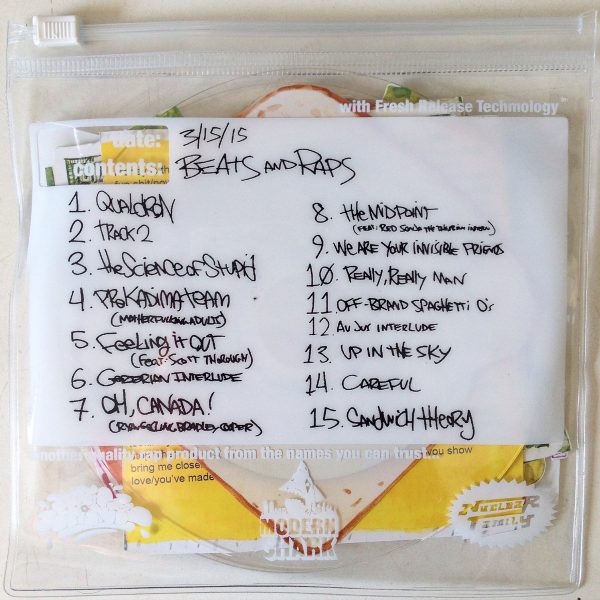 with Fresh Release Technology™
date: 3/15/15
contents: BEATS AND RAPS
1. QUALDRON
2. TRACK 2
3. the Science of Stupid
4. PROKADIMA TEAM
(MOTHERFUCKING ADULTS)
5. Feeling it OUT
(FEAT: SCOTT THOROUGH)
6. INTERLUDE
7. OH, CANADA!
(RYAN GOSLING, BRADLEY COOPER)
8. the MIDPOINT
(FEAT. RED SONJA THE)
9. WE ARE YOUR INVISIBLE FRIENDS
10. REALLY, REALLY MAN
11. OFF-BRAND SPAGHETTI O's
12. AU JUS INTERLUDE
13. UP IN THE SKY
14. CAREFUL
15. SANDWICH THEORY
another quality rap product from the names you can trust...
bring me closer
love/you've made
you show
The
MODERN
SHARK
NUCLEAR
FAMILY